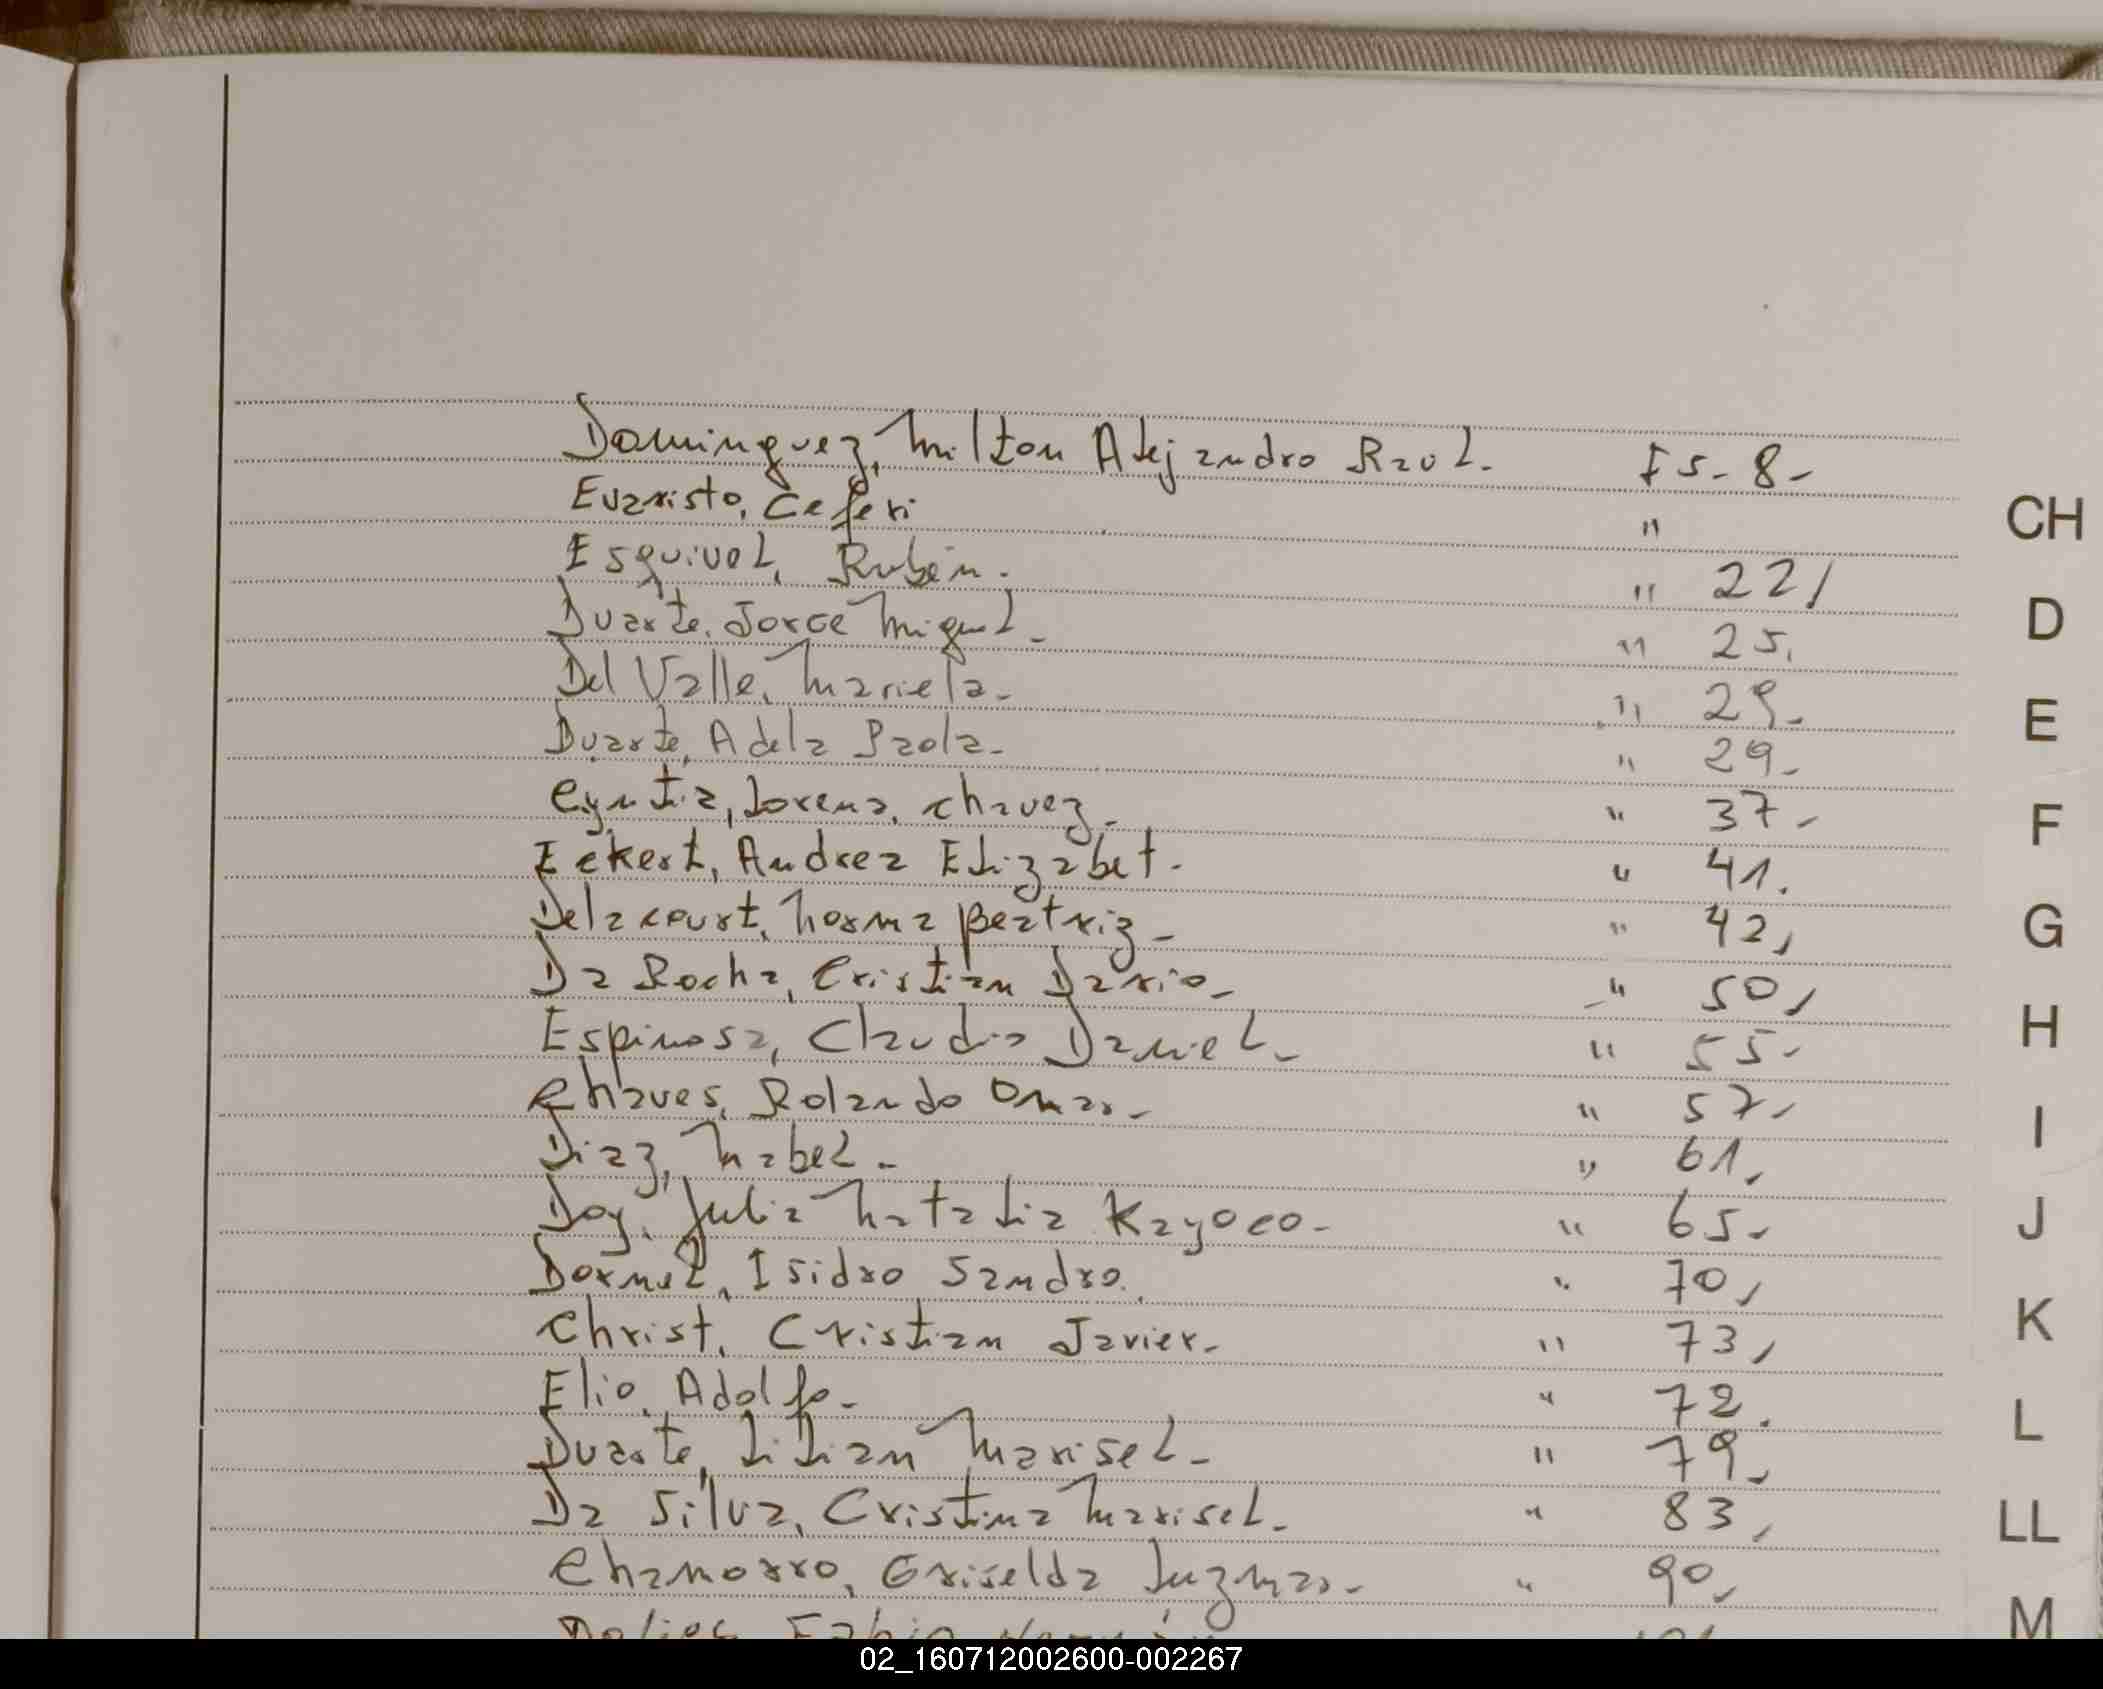 Dominguez, Milton Alejandro Raul. Fs- 8-
Evaristo, Ceferi "
CH
Esquivel, Rubén. " 22/
Duarte, Jorge Miguel. " 25.
D
Del Valle, Mariela. " 29-
E
Duarte, Adela Paola. " 29-
Cyntia, Lorena, Chavez. " 37-
F
Eckert, Andrea Elizabet. " 41.
Delacourt, Norma Beatriz- " 42,
G
Da Rocha, Cristian Dario- " 50,
Espinosa, Claudio Daniel- " 55-
H
Chaves, Rolando Omar- " 57-
I
Diaz, Mabel. " 61,
Doy, Julia Natalia Kayoco- " 65-
J
Isidro Sandro. " 70,
K
Christ, Cristian Javier- " 73,
Elio, Adolfo- " 72.
L
Duarte, Lilian Marisel- " 79,
Da Silva, Cristina Marisel- " 83,
LL
Chamorro, Griselda Luzmar- " 90-
M
02_160712002600-002267